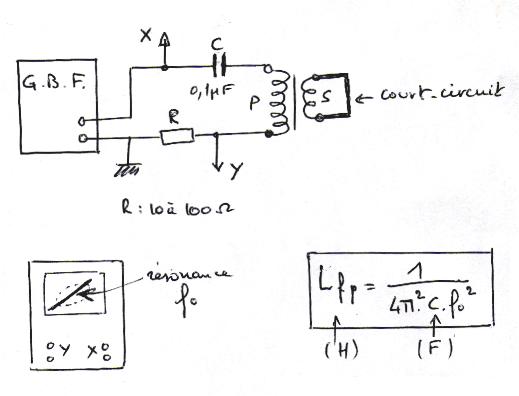 X
C
G.B.F.
0,1µF
P
S
← court-circuit
R
Y
R : 10 à 100 Ω
résonance
f₀
Y X
Lfp = 1 / 4π².C.f₀²
(H) (F)